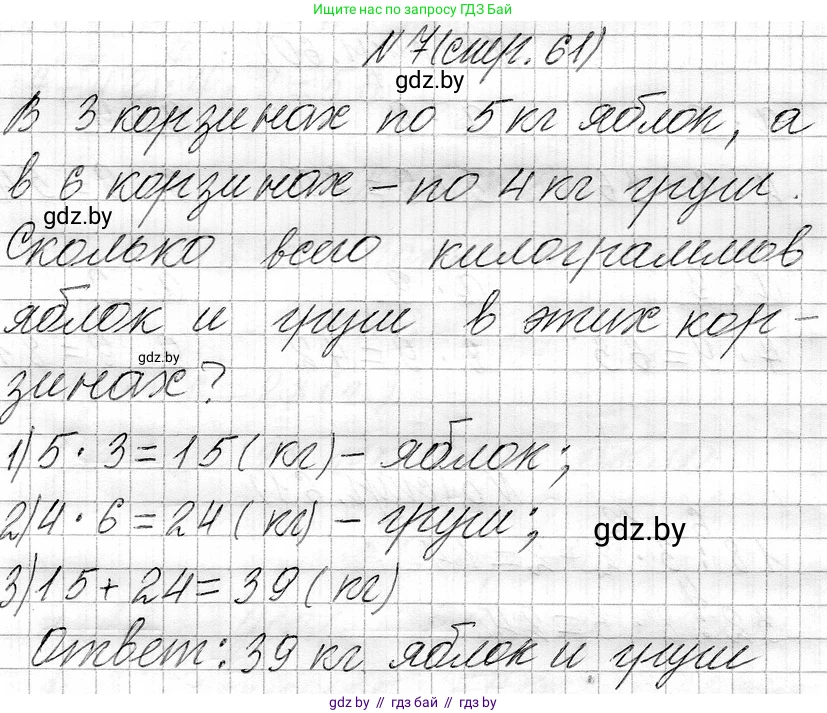 Ищите нас по запросу ГДЗ БАЙ
N 7 (стр. 61)
gdz.by
В 3 корзинах по 5 кг яблок, а
в 6 корзинах – по 4 кг груш.
gdz.by
Сколько всего килограммов
яблок и груш в этих кор-
gdz.by
зинах?
1) 5 · 3 = 15 ( кг) – яблок;
2) 4 · 6 = 24 ( кг) – груш;
gdz.by
3) 15 + 24 = 39 ( кг)
Ответ: 39 кг яблок и груш
gdz.by // гдз бай // gdz.by